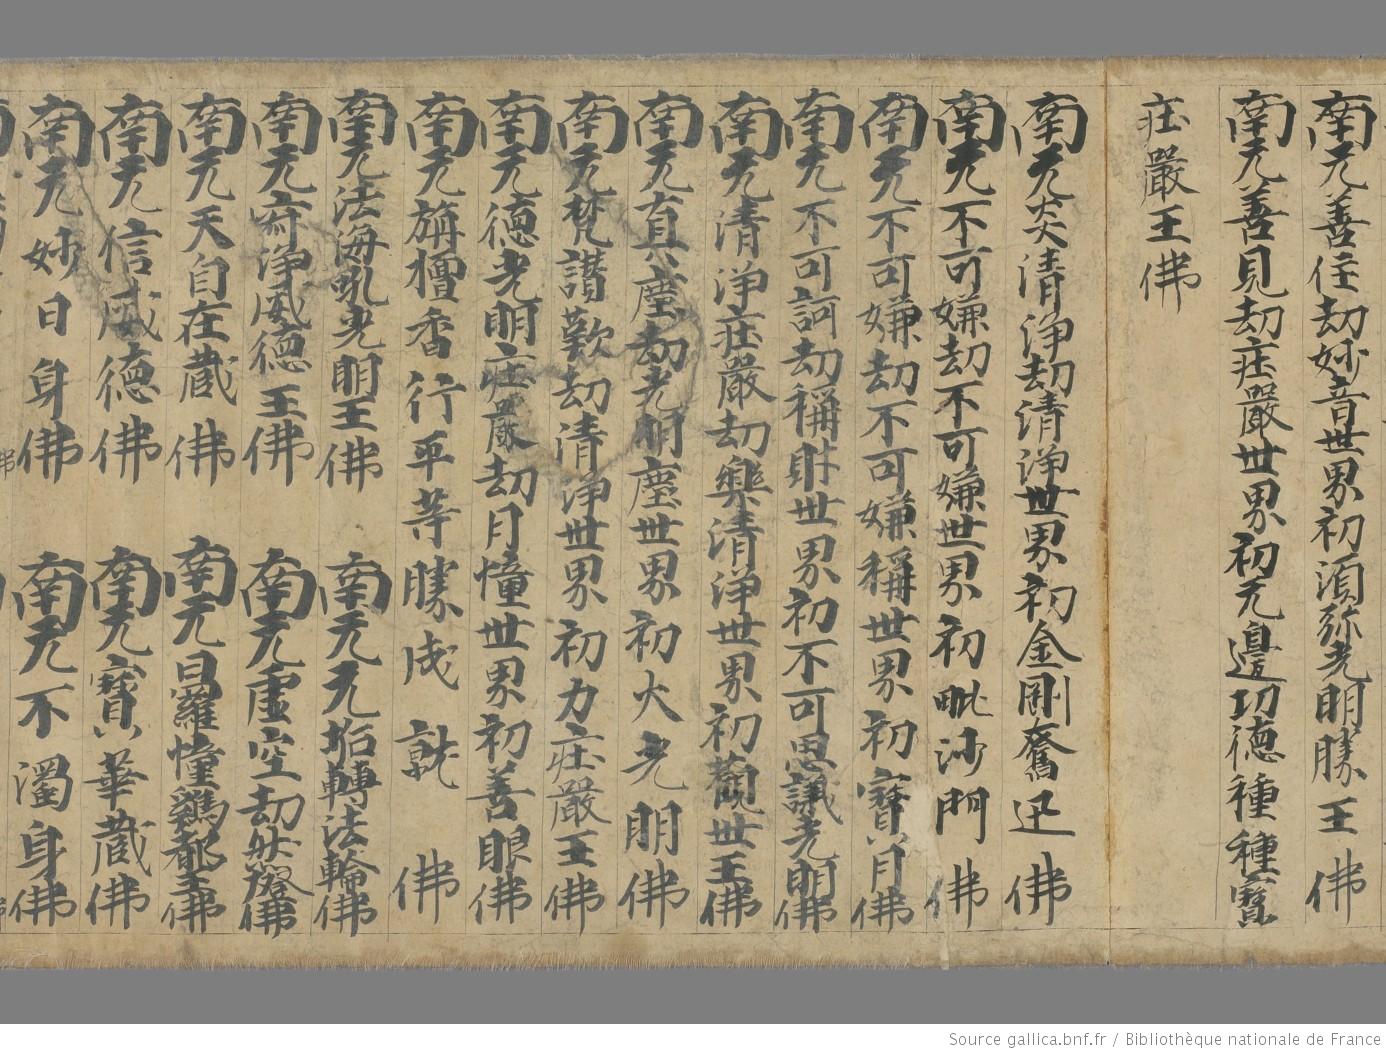 南无善住劫妙音世界初須弥光明勝王佛
南无善見劫庄嚴世界初无邊功德種種寶
庄嚴王佛
南无炎清淨劫清淨世界初金剛奮迅佛
南无不可嫌劫不可嫌世界初毗沙門佛
南无不可嫌劫不可嫌稱世界初寶月佛
南无不可訶劫稱財世界初不可思議光明佛
南无清淨庄嚴劫樂清淨世界初觀世王佛
南无真塵劫光明塵世界初火光明佛
南无梵讚歎劫清淨世界初力庄嚴王佛
南无德光明庄嚴劫月幢世界初善眼佛
南无旃檀香行平等勝成就佛
南无法海吼光明王佛 南无无垢轉法輪佛
南无 淨威德王佛 南无虛空劫 佛
南无天自在藏佛 南无日 羅幢 王佛
南无信威德佛 南无寶華藏佛
南无妙日身佛 南无不濁身佛
Source gallica.bnf.fr / Bibliothèque nationale de France